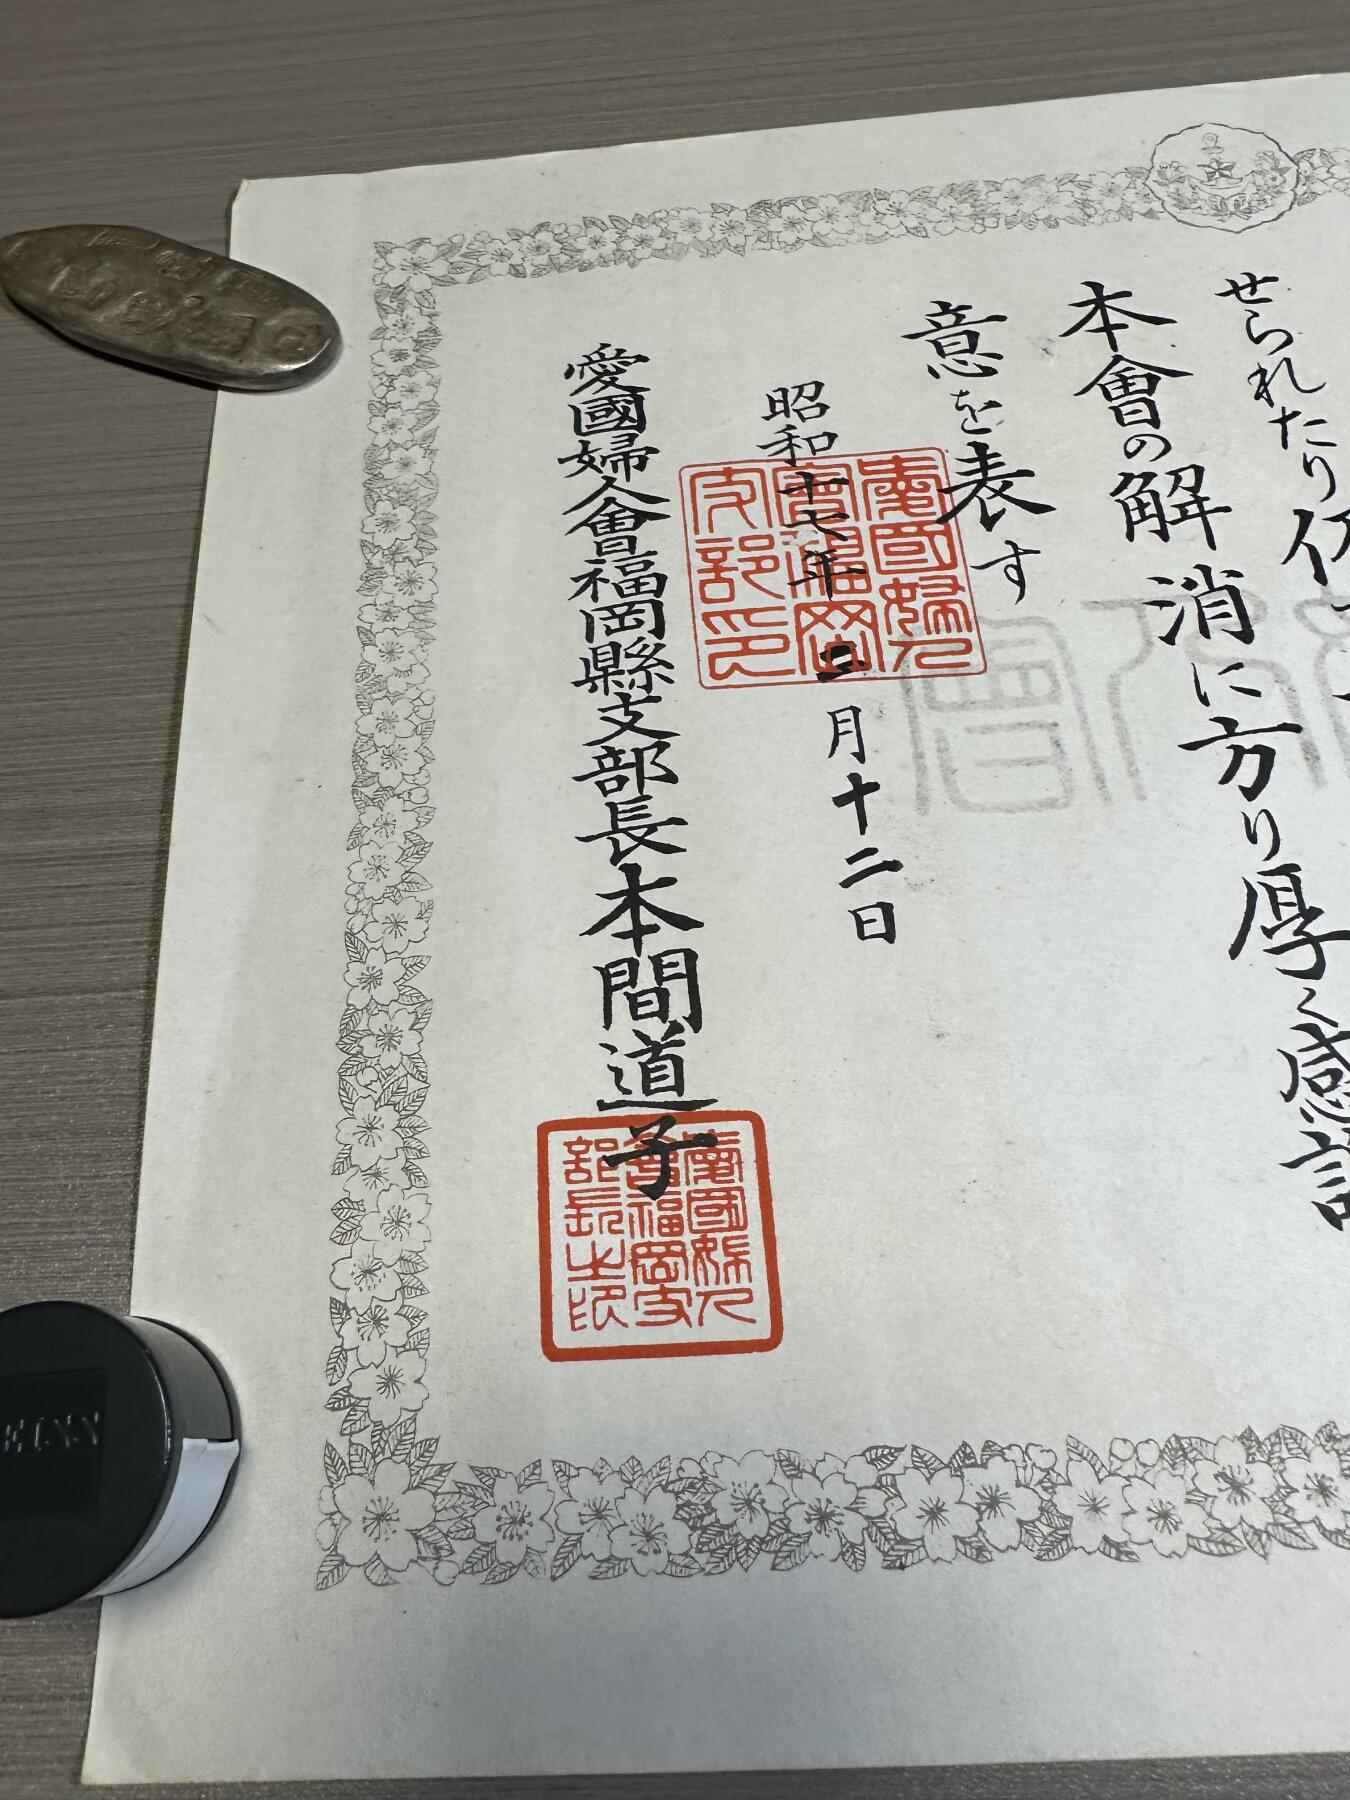 せられたり
本會の解消に方り厚く感
意を表す
昭和十七年二月十二日
愛國婦人會福岡縣支部長本間道子
愛國婦人
會福岡
支部印
愛國婦人
會福岡支
部長之印